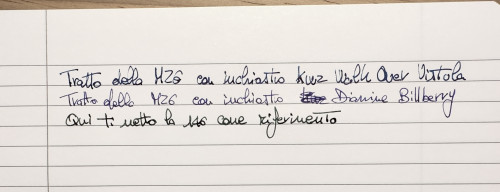 Tratto della M26 con inchiostro Kwz Walk Over Vistola
Tratto della M26 con inchiostro Diamine Billberry
Qui ti metto la 146 come riferimento